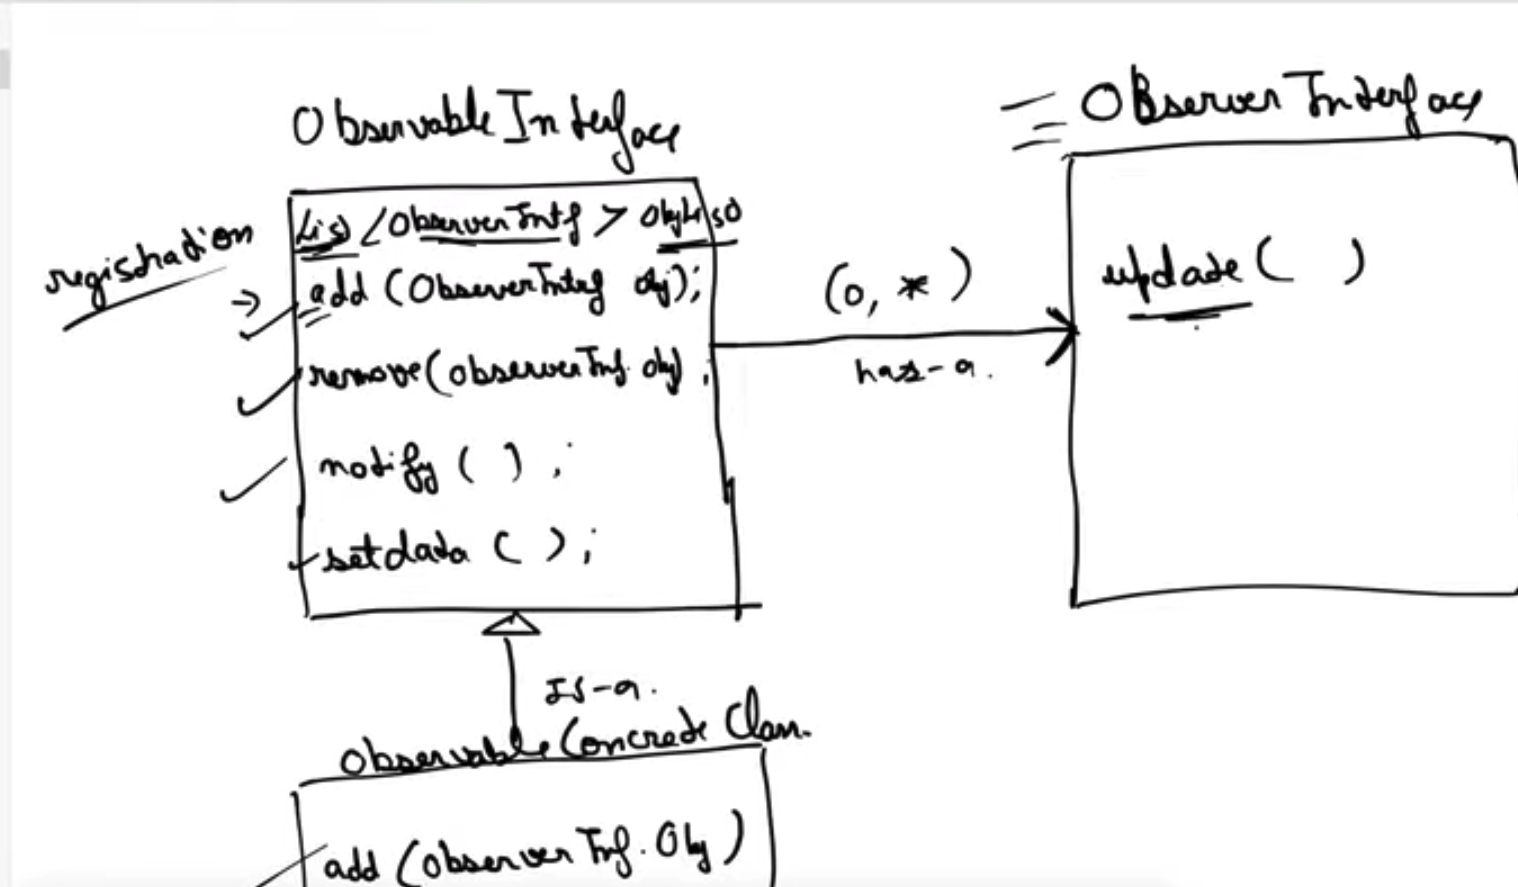 Observable Interface
registration
List <ObserverIntf > ObjList
add (ObserverIntrf obj);
remove(observerInf. obj) ;
notify ( ) ;
setdata ( ) ;
(0, *)
has-a.
OBserver Interface
update ( )
Is-a.
Observable Concrete Class.
add (Observer Inf. Obj)